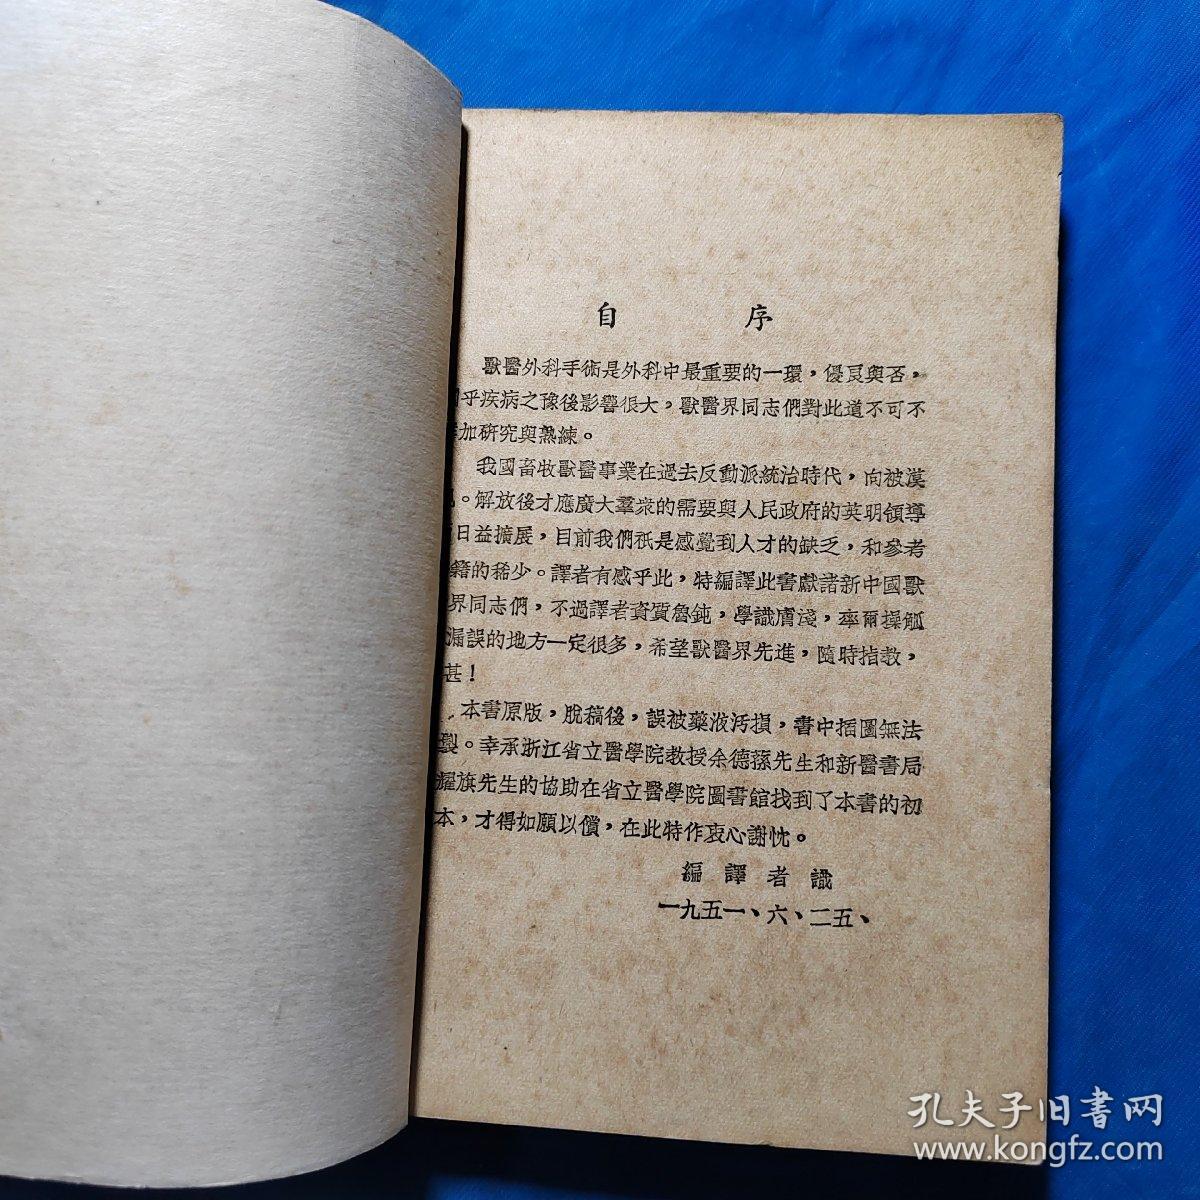 自序
獸醫外科手術是外科中最重要的一環，優良與否，
乎疾病之豫後影響很大，獸醫界同志們對此道不可不
加研究與熟練。
我國畜牧獸醫事業在過去反動派統治時代，向被漠
。解放後才應廣大羣衆的需要與人民政府的英明領導
日益擴展，目前我們祇是感覺到人才的缺乏，和參考
籍的稀少。譯者有感乎此，特編譯此書獻諸新中國獸
界同志們，不過譯者資質魯鈍，學識膚淺，率爾操觚
漏誤的地方一定很多，希望獸醫界先進，隨時指教，
甚！
本書原版，脫稿後，誤被藥液汚損，書中插圖無法
製。幸承浙江省立醫學院教授余德蓀先生和新醫書局
耀旗先生的協助在省立醫學院圖書館找到了本書的初
本，才得如願以償，在此特作衷心謝忱。
編譯者識
一九五一、六、二五、
孔夫子旧書网
www.kongfz.com